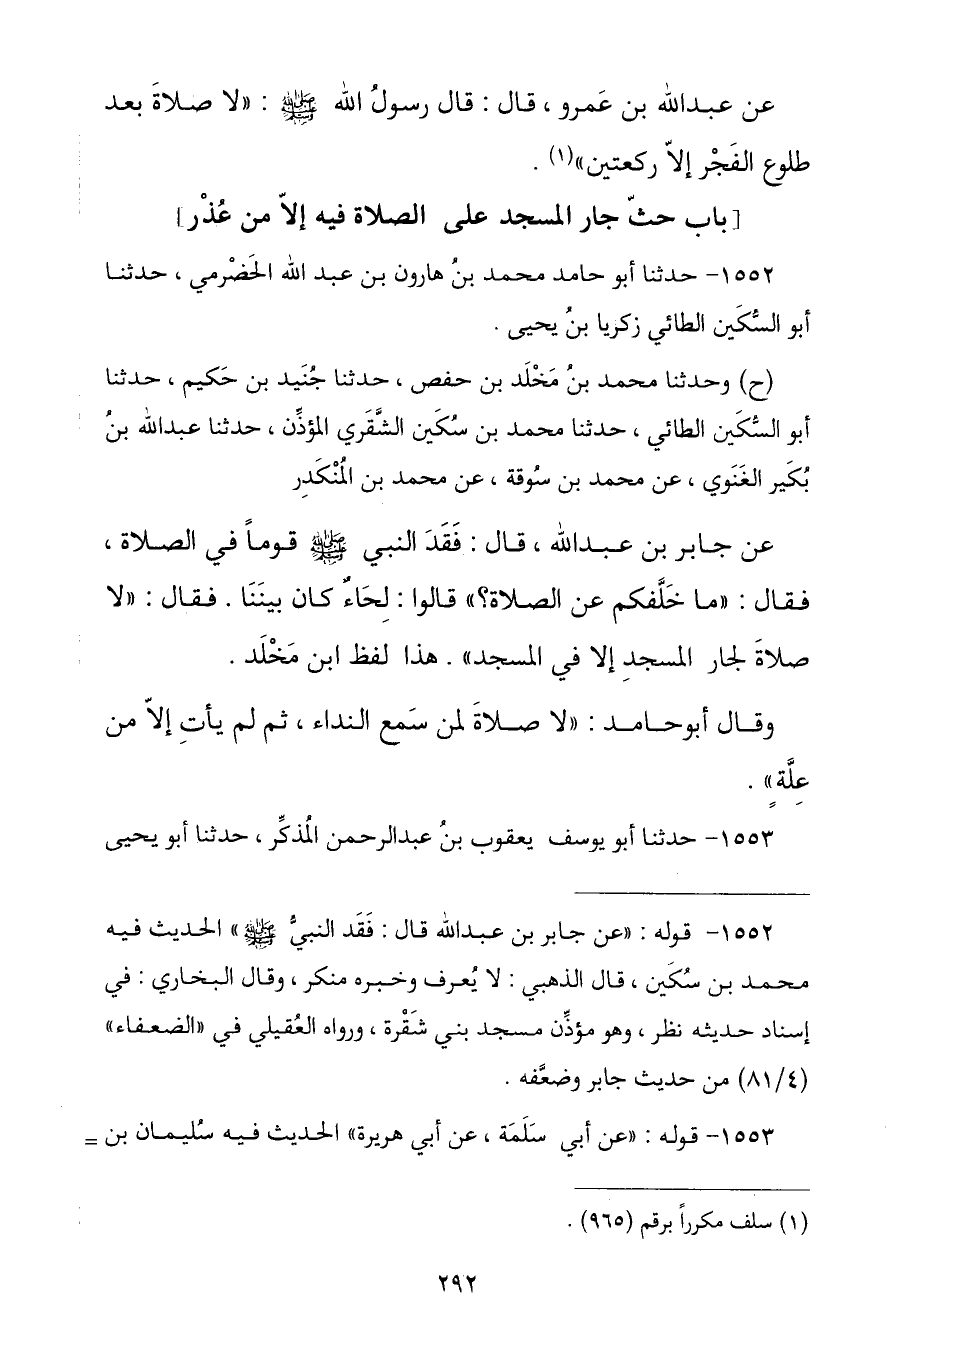 عن عبدالله بن عَمرو ، قال : قال رسولُ الله ﷺ : «لا صلاةَ بعد
طلوع الفَجْر إلاّ ركعتين»(١) .
[باب حثّ جار المسجد على الصلاة فيه إلاّ من عُذْر]
١٥٥٢- حدثنا أبو حامد محمد بنُ هارون بن عبد الله الحَضْرمي ، حدثنا
أبو السُّكَين الطائي زكريا بنُ يحيى .
(ح) وحدثنا محمد بنُ مَخْلَد بن حفص ، حدثنا جُنَيد بن حَكيم ، حدثنا
أبو السُّكَين الطائي ، حدثنا محمد بن سُكَين الشَّقَري المؤذِّن ، حدثنا عبدالله بنُ
بُكَير الغَنَوي ، عن محمد بن سُوقة ، عن محمد بن المُنْكَدِر
عن جابر بن عبدالله ، قال : فَقَدَ النبي ﷺ قوماً في الصلاة ،
فقال : «ما خَلَّفكم عن الصلاة؟» قالوا : لِحَاءٌ كان بينَنَا . فقال : «لا
صلاةَ لجار المسجدِ إلا في المسجد» . هذا لفظ ابن مَخْلَد .
وقال أبوحامد : «لا صلاةَ لمن سَمع النداء ، ثم لم يأتِ إلاّ من
عِلَّةٍ» .
١٥٥٣- حدثنا أبو يوسف يعقوب بنُ عبدالرحمن المُذكِّر ، حدثنا أبو يحيى
١٥٥٢- قوله : «عن جابر بن عبدالله قال : فَقَد النبيُّ ﷺ» الحديث فيه
محمد بن سُكَين ، قال الذهبي : لا يُعرف وخبره منكر ، وقال البخاري : في
إسناد حديثه نظر ، وهو مؤذِّن مسجد بني شَقْرة ، ورواه العُقيلي في «الضعفاء»
(٨١/٤) من حديث جابر وضعَّفه .
١٥٥٣- قوله : «عن أبي سَلَمَة ، عن أبي هريرة» الحديث فيه سُليمان بن =
(١) سلف مكرراً برقم (٩٦٥) .
٢٩٢